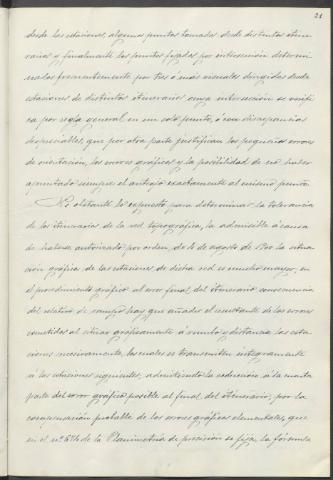 21
desde las estaciones, algunos puntos tomados desde distintos itine-
rarios y finalmente los puntos fijados por intersección determi-
nados frecuentemente por tres ó más visuales dirigidas desde
estaciones de distintos itinerarios cuya intersección se verifi-
ca por regla general en un solo punto, ó con discrepancias
despreciables, que por otra parte justifican los pequeños errores
de orientación, los errores gráficos y la posibilidad de no haber
apuntado siempre el anteojo exactamente al mismo punto.
No obstante lo expuesto para determinar la tolerancia
de los itinerarios de la red topográfica, la admisible á causa
de haberse autorizado por orden, de 10 de agosto de 1900 la situa-
ción gráfica de las estaciones de dicha red es mucho mayor, en
el procedimiento gráfico al error final del itinerario consecuencia
del relativo de campo hay que añadir el resultante de los errores
cometidos al situar gráficamente á rumbo y distancia las esta-
ciones sucesivamente, los cuales se transmiten íntegramente
á las estaciones siguientes, admitiendo la reducción á la cuarta
parte del error gráfico posible al final del itinerario, por la
compensación probable de los errores gráficos elementales, que
en el nº de la Planimetría de precisión se fija, la fórmula